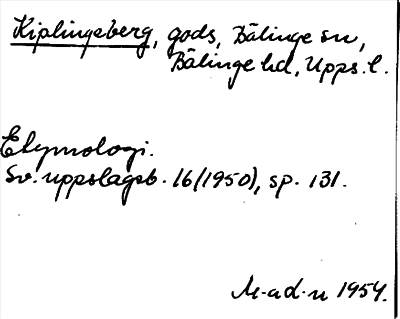 Kiplingeberg, gods, Bälinge sn,
Bälinge hd, Upps. l.
Etymologi.
Sv. uppslagsb. 16 (1950), sp. 131.
M-ad-n 1954.